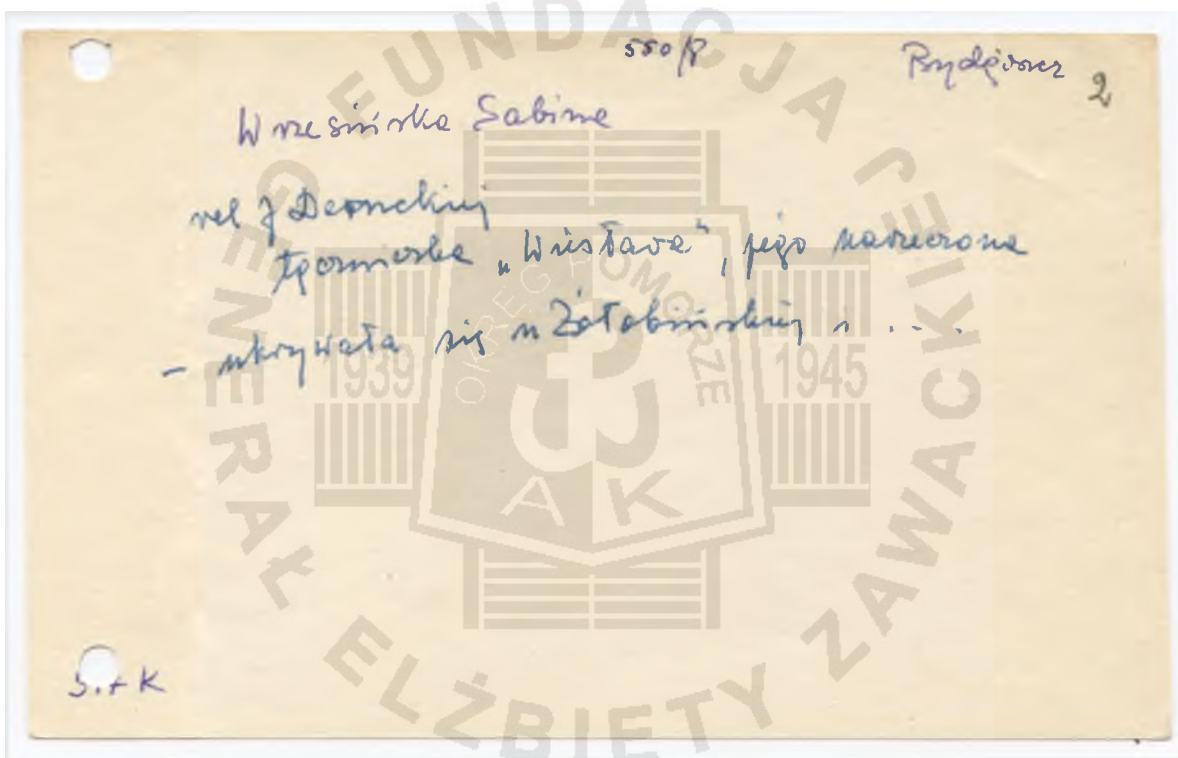 550/8 Bydgoszcz 2
Wrzesińska Sabina
rel J
łączniczka „Wiesława”, jego narzeczona
- ukrywała się u Żołobińskiej i ....
S.+K
FUNDACJA GENERAŁ ELŻBIETY ZAWACKIEJ
OKRĘG POMORZE
1939 1945
AK